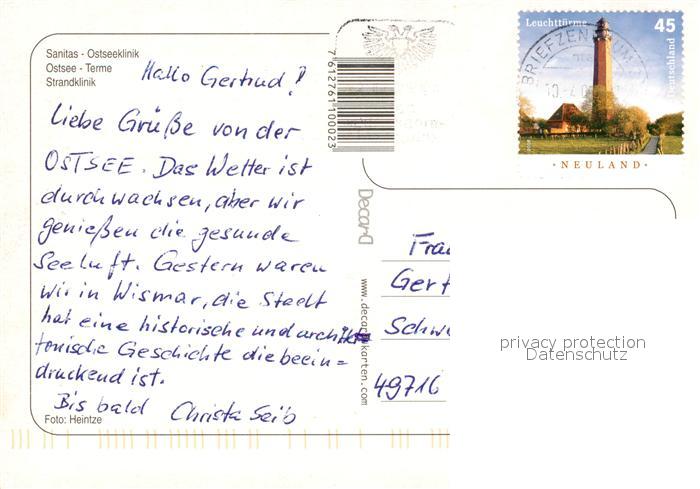 Sanitas - Ostseeklinik
Ostsee - Terme
Strandklinik
Hallo Gertrud!
Liebe Grüße von der
OSTSEE. Das Wetter ist
durchwachsen, aber wir
genießen die gesunde
Seeluft. Gestern waren
wir in Wismar, die Stadt
hat eine historische und architek
tonische Geschichte die beein=
druckend ist.
Bis bald Christa Seib
Foto: Heintze
7612761100023
Decard
Leuchttürme 45
Deutschland
BRIEFZENTRUM
NEULAND
Frau
Gert
Schw
49716
privacy protection
Datenschutz